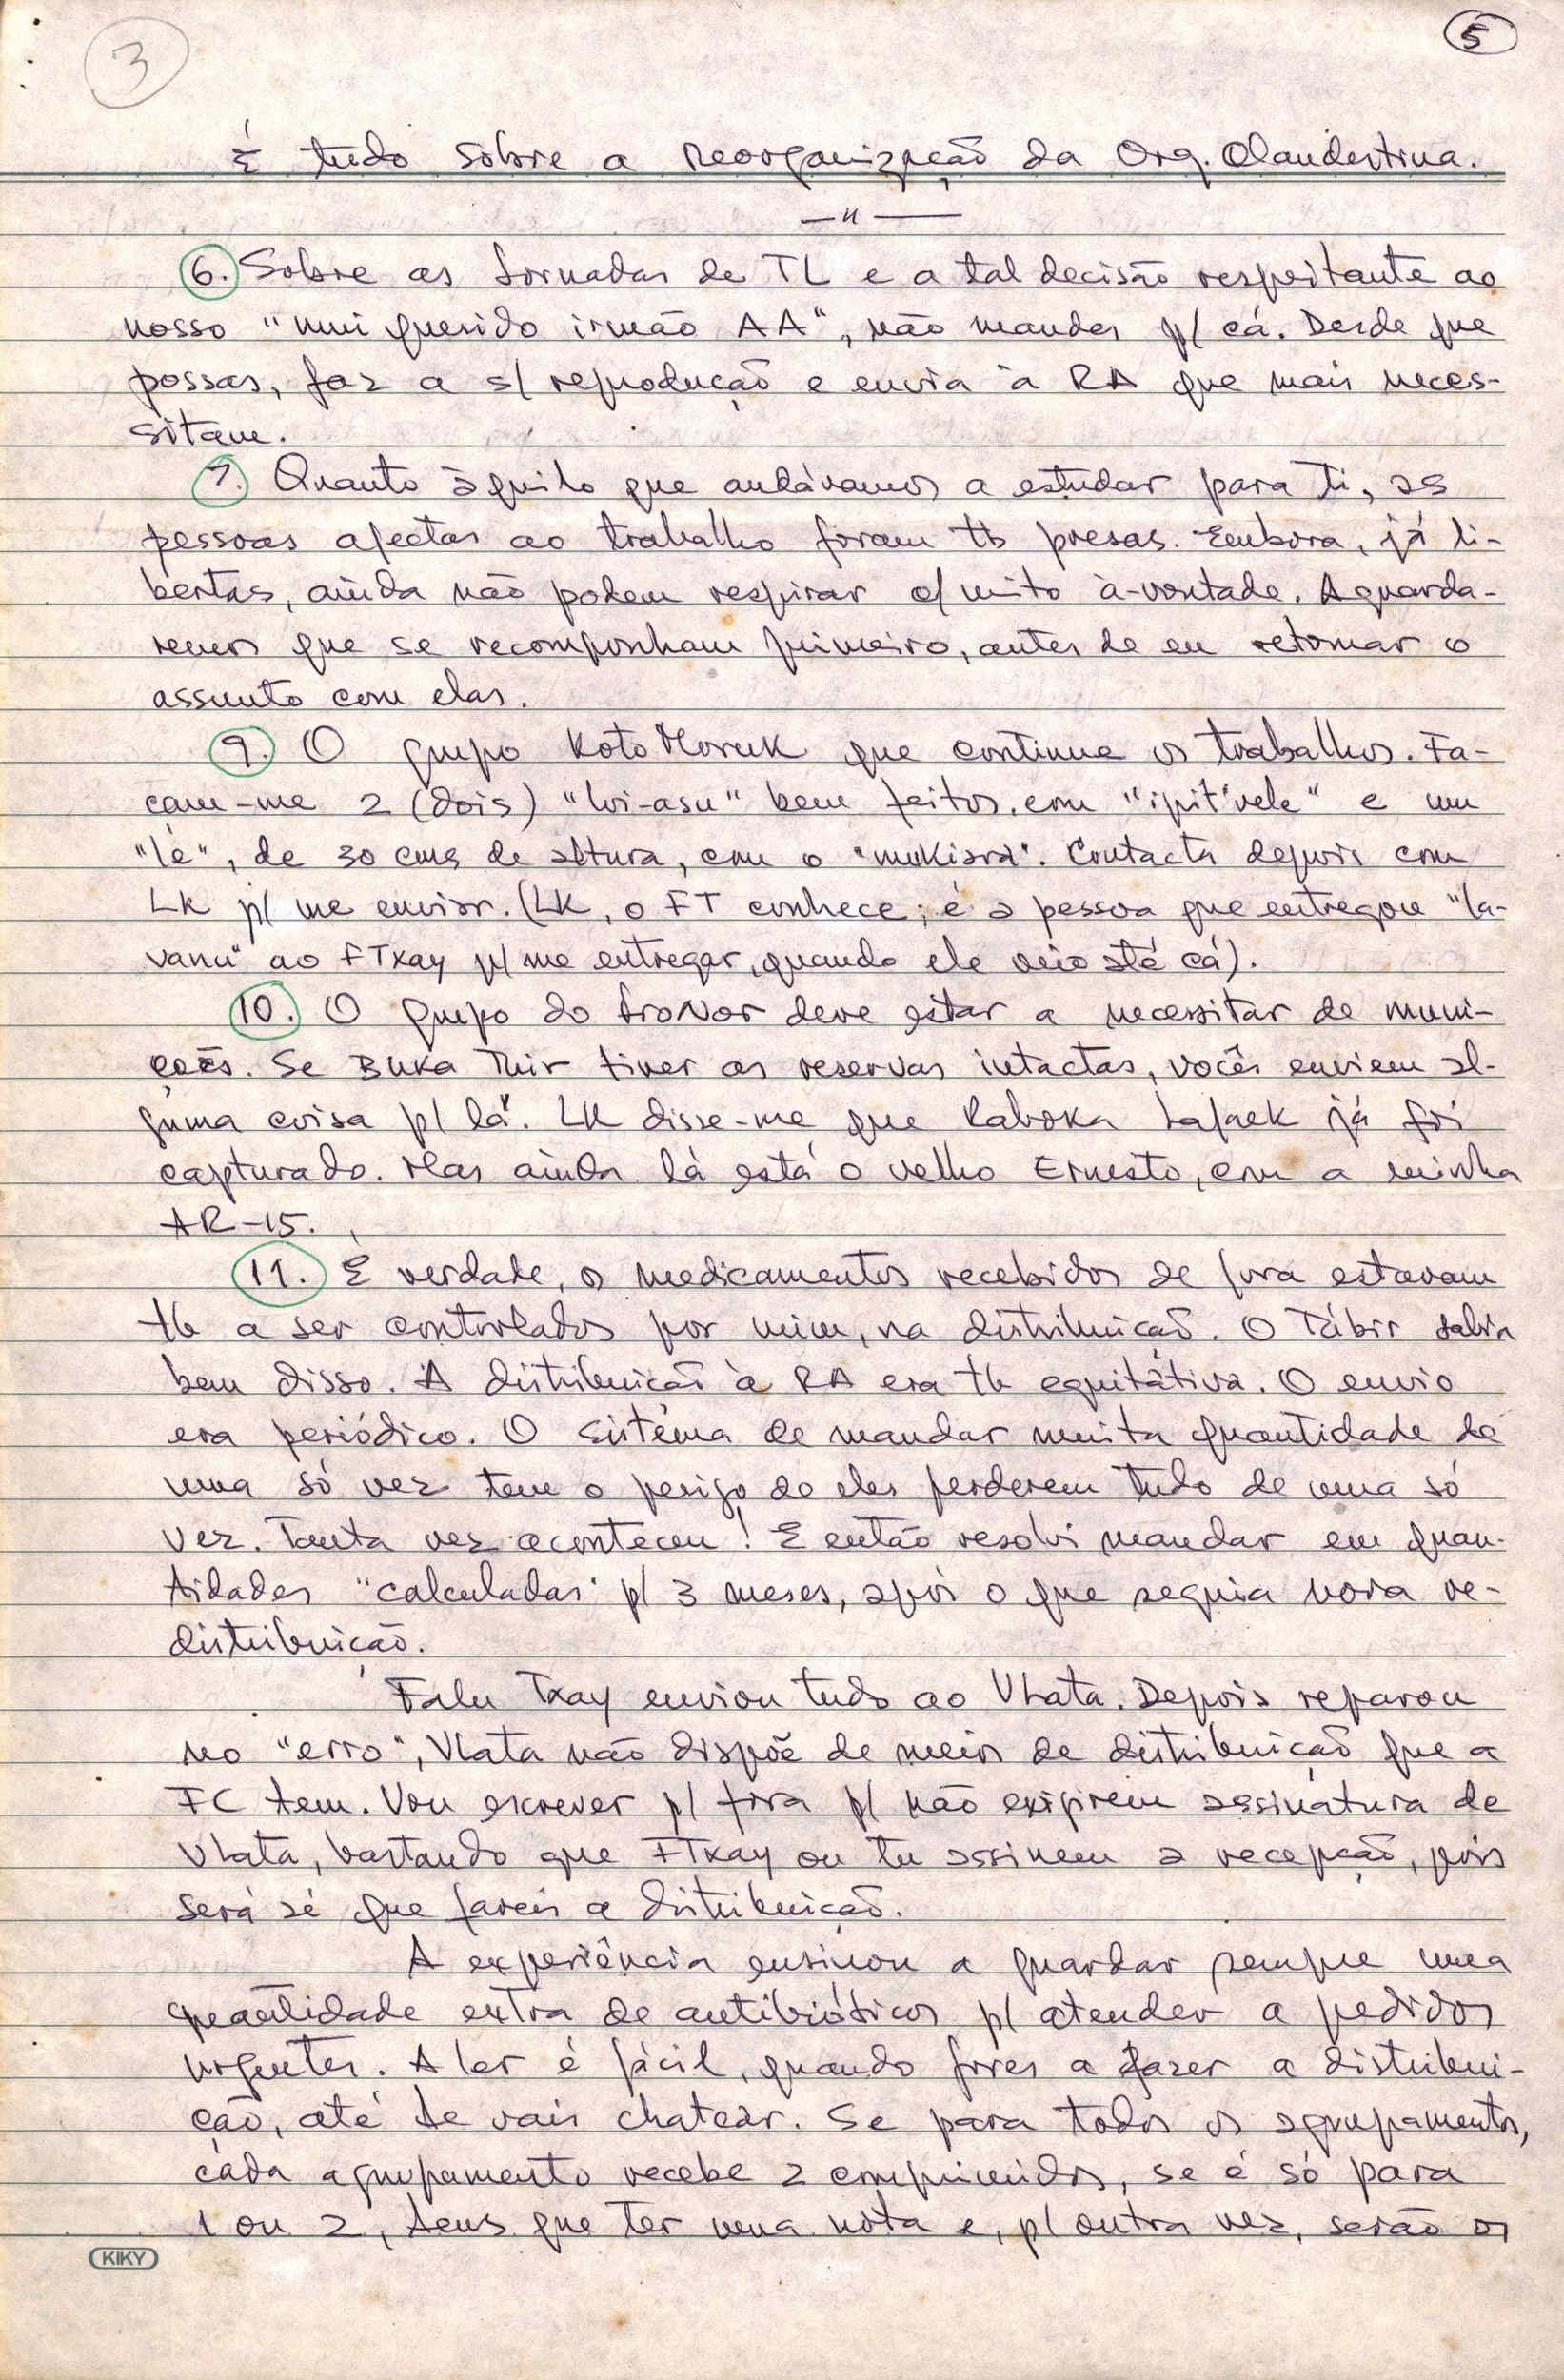 3
5
É tudo sobre a reorganização da Org. Clandestina.
—"—
6. Sobre as Jornadas de TL e a tal decisão respeitante ao
nosso "mui querido irmão AA", não mandes p/ cá. Desde que
possas, faz a s/ reprodução e envia à RA que mais neces-
sitam.
7. Quanto àquilo que andávamos a estudar para ti, as
pessoas afectas ao trabalho foram tb presas. Embora, já li-
bertas, ainda não podem respirar c/ mito à-vontade. Aguarda-
remos que se recomponham primeiro, antes de eu retomar o
assunto com elas.
9. O grupo Koto Moruk que continue os trabalhos. Fa-
çam-me 2 (dois) "loi-asu" bem feitos, com "ipit'vele" e um
"lé", de 30 cms de altura, com o "mukiara". Contacta depois com
LK p/ me enviar. (LK, o FT conhece; é a pessoa que entregou "la-
vanu" ao FTxay p/ me entregar, quando ele veio até cá).
10. O grupo do LroNor deve estar a necessitar de muni-
ções. Se Buka Thir tiver as reservas intactas, vocês enviem al-
guma coisa p/ lá. LK disse-me que Raboka Lafaek já foi
capturado. Mas ainda lá está o velho Ernesto, com a minha
AR-15.
11. É verdade, os medicamentos recebidos de fora estavam
tb a ser controlados por mim, na distribuição. O Tábir sabia
bem disso. A distribuição à RA era tb equitátiva. O envio
era periódico. O sistema de mandar muita quantidade de
uma só vez tem o perigo de eles perderem tudo de uma só
vez. Tanta vez aconteceu! E então resolvi mandar em quan-
tidades "calculadas" p/ 3 meses, após o que seguia nova re-
distribuição.
Falu Txay enviou tudo ao VLata. Depois reparou
no "erro", VLata não dispõe de meios de distribuição que a
FC tem. Vou escrever p/ fora p/ não exigirem assinatura de
VLata, bastando que FTxay ou tu assinem a recepção, pois
será zé que fareis a distribuição.
A experiência ensinou a guardar sempre uma
quantidade extra de antibióticos p/ atender a pedidos
urgentes. A ler é fácil, quando fores a fazer a distribui-
ção, até te vais chatear. Se para todos os agrupamentos,
cada agrupamento recebe 2 comprimidos, se é só para
1 ou 2, tens que ter uma nota e, p/ outra vez, serão os
KIKY